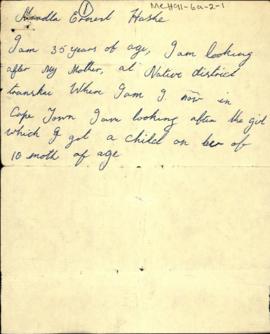 MCH91-6a-2-1
1
Mandla Ernest Hashe
I am 35 years of age, I am looking
after my Mother, at Native district
transkei When I am I now in
Cape Town I am looking after the girl
which I got a child on her of
10 moth of age